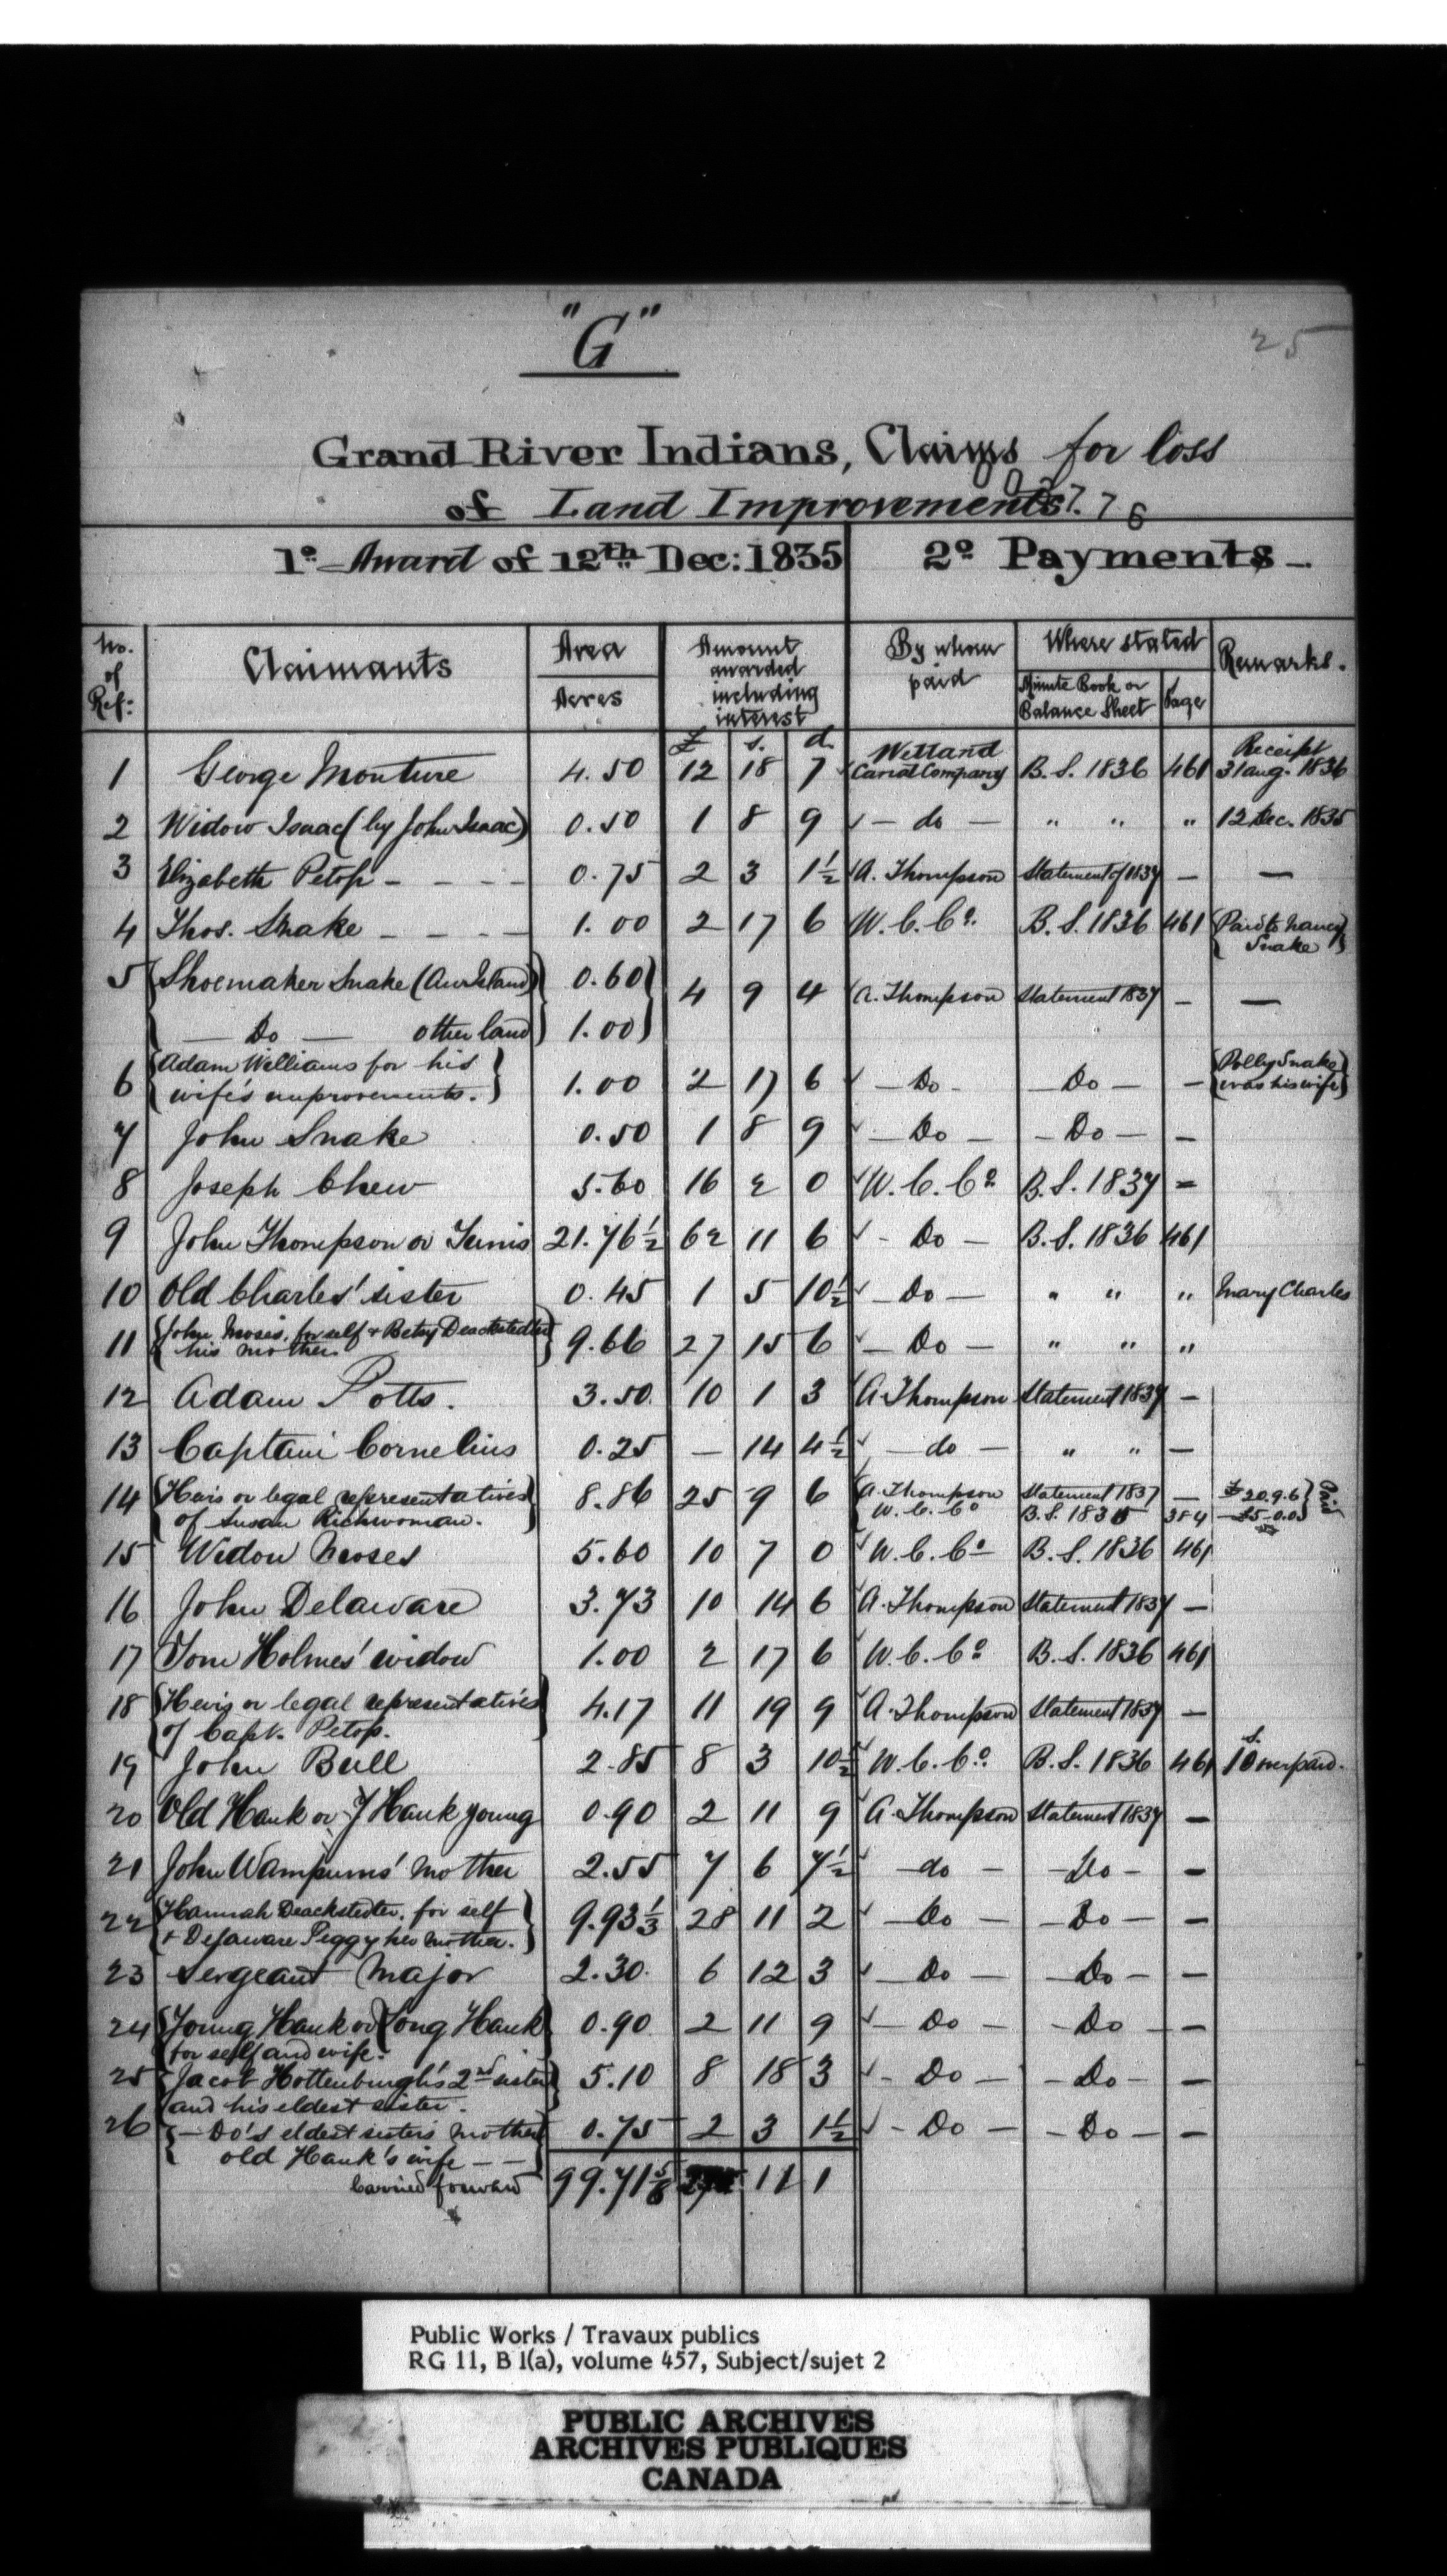 "G"
25
Grand River Indians, Claims for loss
of Land Improvements.
1º Award of 12th Dec: 1835 2º Payments
No. of Ref: Claimants Area Acres Amount awarded including interest By whom paid Where stated Minute Book or Balance Sheet Page Remarks.
£ s. d.
1 George Monture 4.50 12 18 7 Welland Canal Company B. S. 1836 461 Receipt 31 Aug. 1836
2 Widow Isaac (by John Isaac) 0.50 1 8 9 — do — " " " 12 Dec. 1835
3 Elizabeth Petop - - - - 0.75 2 3 1½ A. Thompson Statement of 1837 — —
4 Thos. Snake - - - - 1.00 2 17 6 W. C. Cº. B. S. 1836 461 Paid to Nancy Snake
5 Shoemaker Snake 0.60 4 9 4 A. Thompson Statement 1837 — —
— Do — other land 1.00
6 Adam Williams for his wife's improvements. 1.00 2 17 6 — Do — — Do — — Polly Snake was his wife
7 John Snake 0.50 1 8 9 — Do — — Do — —
8 Joseph Chew 5.60 16 2 0 W. C. Cº B. S. 1837 =
9 John Thompson or Tunis 21.76½ 62 11 6 - Do — B. S. 1836 461
10 Old Charles' sister 0.45 1 5 10½ — Do — " " " Mary Charles
11 John Moses, for self + Betsy Deackstedter his mother. 9.66 27 15 6 — Do — " " "
12 Adam Potts. 3.50 10 1 3 A. Thompson Statement 1837 —
13 Captain Cornelius 0.25 — 14 4½ — do — " " —
14 Heirs or legal representatives of Susan Richwoman. 8.86 25 9 6 A. Thompson Statement 1837 — £20.9.6
W. C. Cº B. S. 1835 384 £5-0.0 Paid
15 Widow Moses 5.60 10 7 0 W. C. Cº B. S. 1836 461
16 John Delaware 3.73 10 14 6 A. Thompson Statement 1837 —
17 Tom Holmes' widow 1.00 2 17 6 W. C. Cº B. S. 1836 461
18 Heirs or legal representatives of Capt. Petop. 4.17 11 19 9 A. Thompson Statement 1837 —
19 John Bull 2.85 8 3 10½ W. C. Cº. B. S. 1836 461 10 s. overpaid.
20 Old Hank or J Hank young 0.90 2 11 9 A. Thompson Statement 1837 —
21 John Wampums' mother 2.55 7 6 7½ — do — — Do — —
22 Hannah Deackstedter, for self + Delaware Peggy her mother. 9.93⅓ 28 11 2 — Do — — Do — —
23 Sergeant Major 2.30 6 12 3 — Do — — Do — —
24 Young Hank or Long Hank for self and wife. 0.90 2 11 9 — Do — — Do — —
25 Jacob Hottenburgh's 2nd sister and his eldest sister. 5.10 8 18 3 - Do — — Do — —
26 — Do's eldest sister's mother old Hank's wife — — 0.75 2 3 1½ - Do — — Do — —
Carried forward 99.71⅚ 11 1
Public Works / Travaux publics
RG 11, B 1(a), volume 457, Subject/sujet 2
PUBLIC ARCHIVES
ARCHIVES PUBLIQUES
CANADA